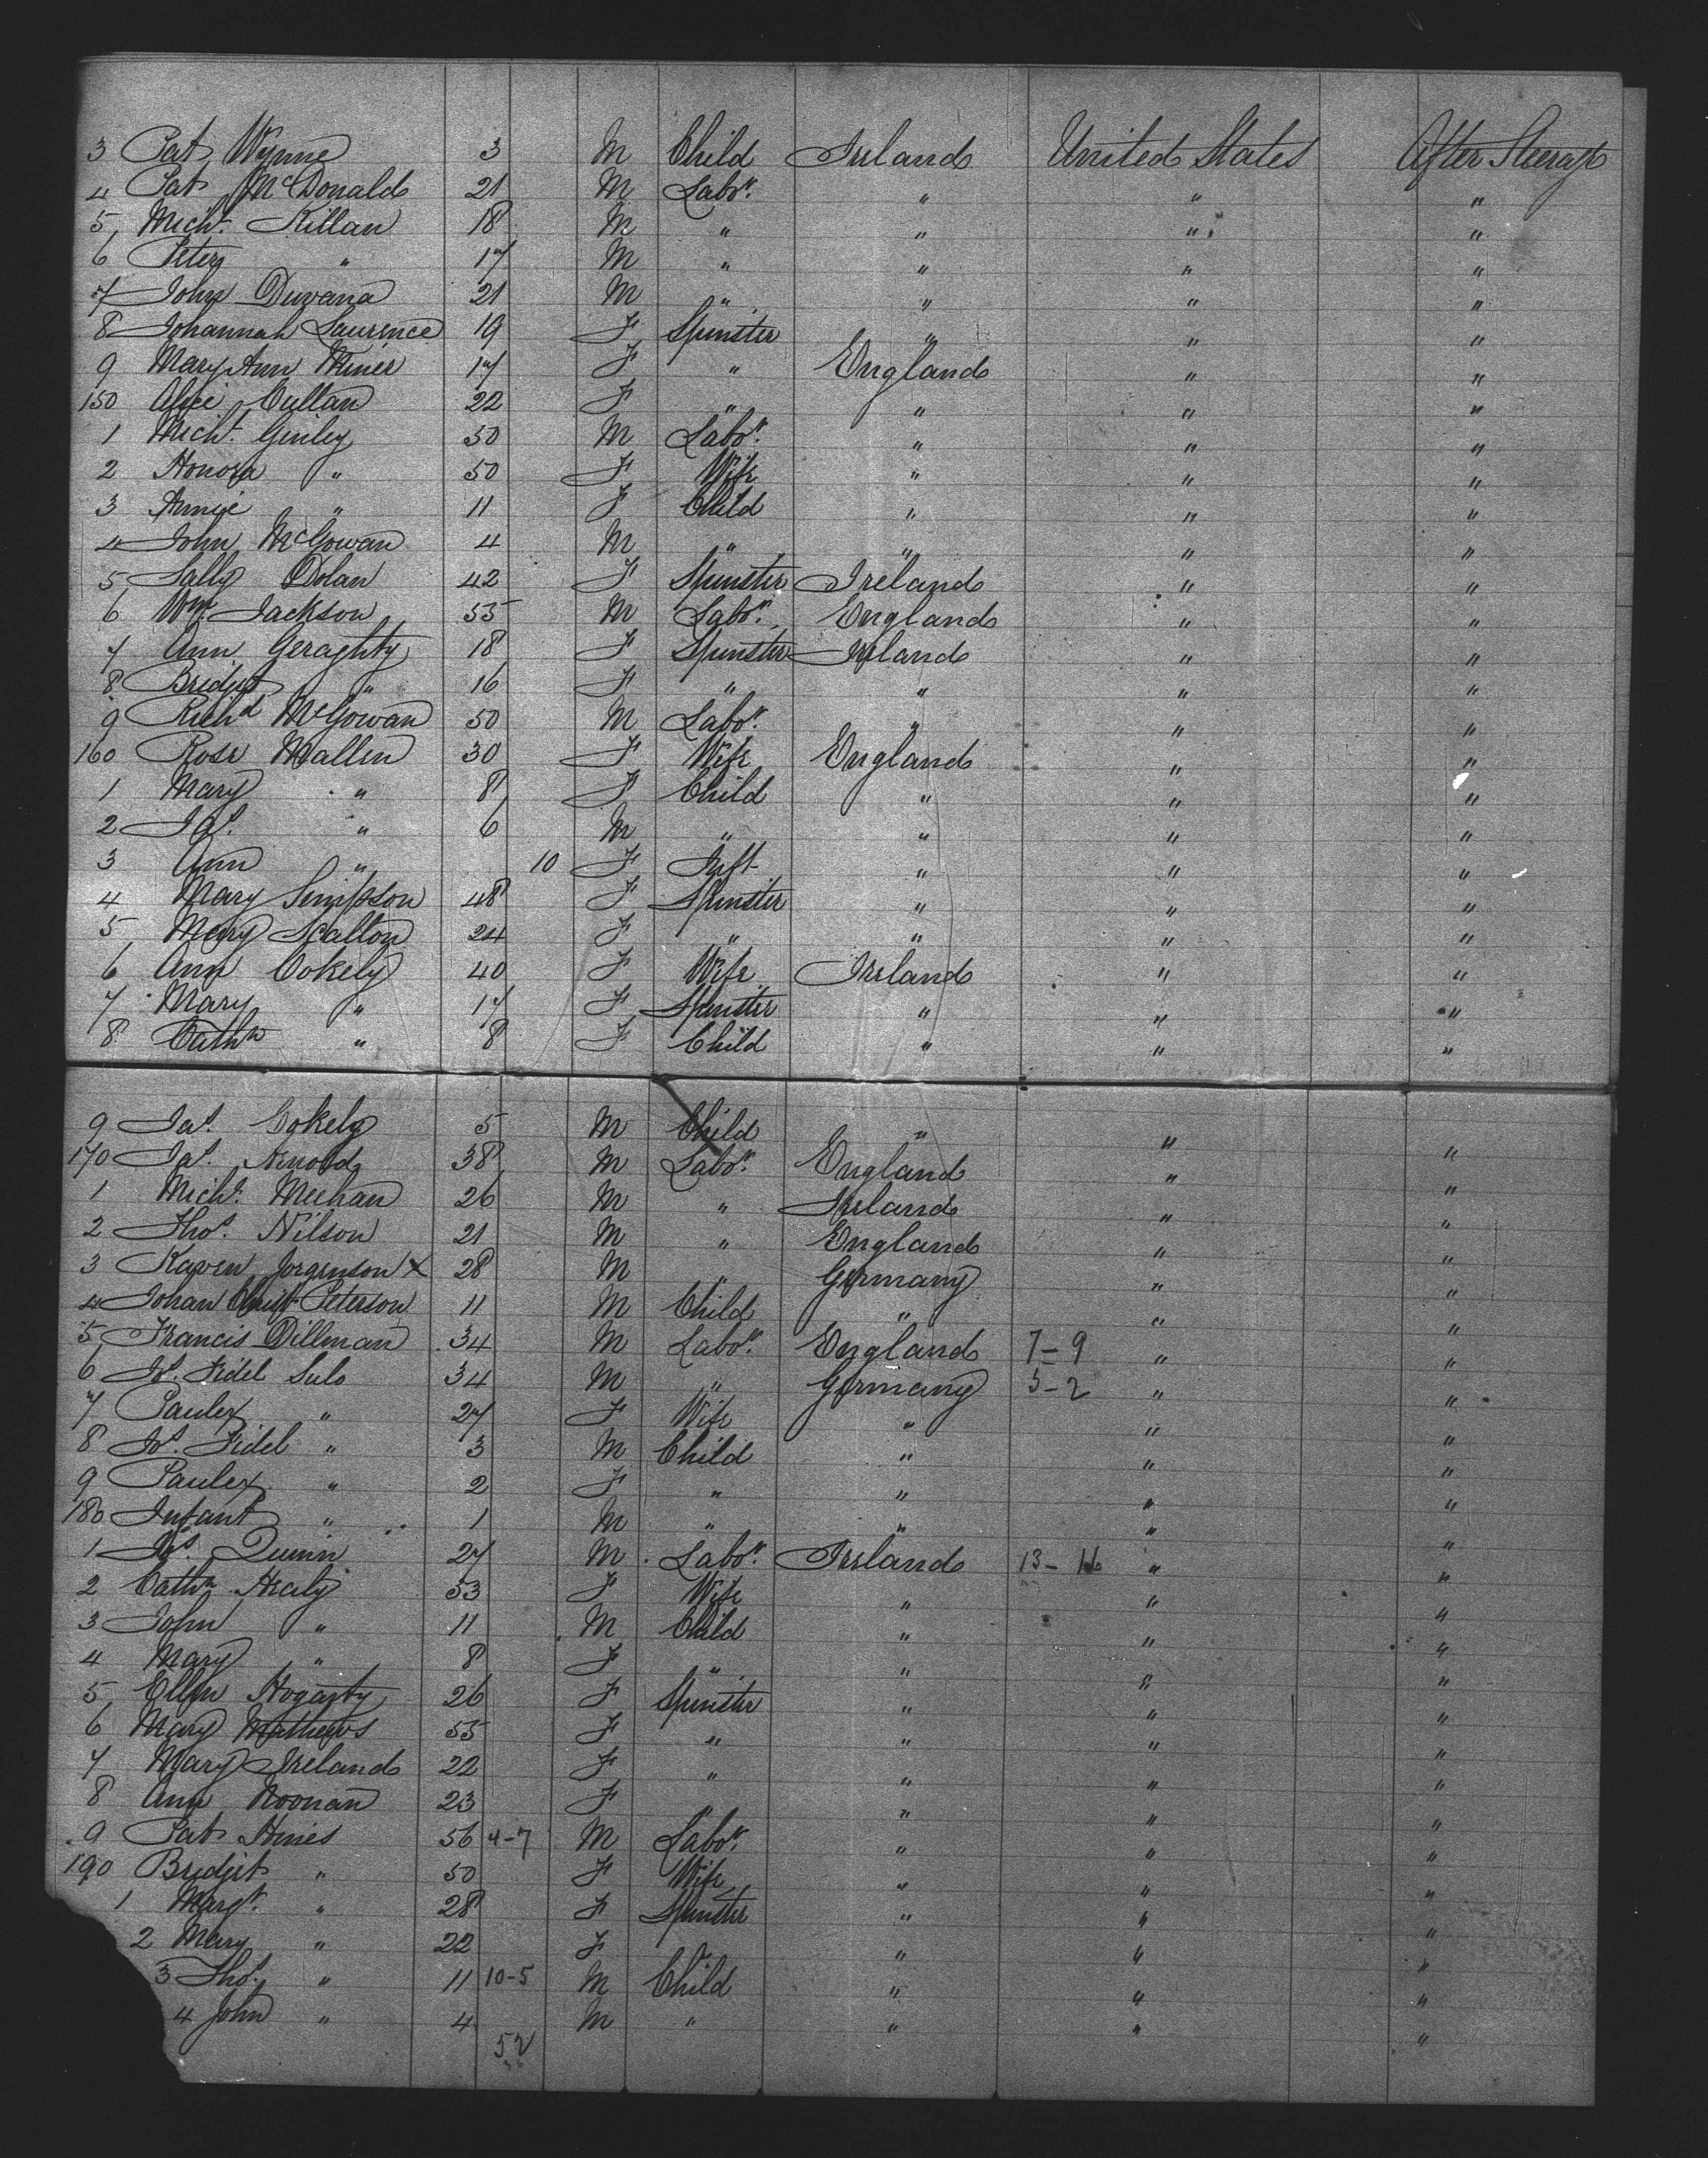 3 Pat Wynne 3 M Child Ireland United States After Steerage
4 Pat McDonald 21 M Labor. " " "
5 Micht. Killan 18 M " " " "
6 Peter " 17 M " " " "
7 John Duvana 21 M " " " "
8 Johannah Laurence 19 F Spinster " " "
9 Mary Ann Miner 17 F " England " "
150 Alice Cullan 22 F " " " "
1 Micht. Ginley 50 M Labor. " " "
2 Honora " 50 F Wife " " "
3 Annie " 11 F Child " " "
4 John McGowan 4 M " " " "
5 Sally Dolan 42 F Spinster Ireland " "
6 Wm. Jackson 55 M Labor. England " "
7 Ann Geraghty 18 F Spinster Ireland " "
8 Bridget " 16 F " " " "
9 Richd McGowan 50 M Labor. " " "
160 Rose Mallen 30 F Wife England " "
1 Mary " 8 F Child " " "
2 Jas. " 6 M " " " "
3 Ann " 10 F Inft " " "
4 Mary Simpson 48 F Spinster " " "
5 Mary Scalton 24 F " " " "
6 Ann Cokely 40 F Wife Ireland " "
7 Mary " 17 F Spinster " " "
8 Cathn " 8 F Child " " "
9 Jas. Cokely 5 M Child " " "
170 Jas. Arnold 38 M Labor. England " "
1 Micht. Meehan 26 M " Ireland " "
2 Thos. Nilson 21 M " England " "
3 Karen Jorgenson x 28 M " Germany " "
4 Johan Christ Peterson 11 M Child " " "
5 Francis Dillman 34 M Labor. England 7-9 " "
6 Js. Fidel Sulo 34 M " Germany 5-2 " "
7 Paulex " 27 F Wife " " "
8 Js. Fidel " 3 M Child " " "
9 Paulex " 2 F " " " "
180 Infant " 1 M " " " "
1 Jas. Quinn 27 M Labor. Ireland 13-16 " "
2 Cathn Healy 53 F Wife " " "
3 John " 11 M Child " " "
4 Mary " 8 F " " " "
5 Ellen Hogarty 26 F Spinster " " "
6 Mary Mathews 55 F " " " "
7 Mary Ireland 22 F " " " "
8 Ann Noonan 23 F " " " "
9 Pat Hines 56 4-7 M Labor. " " "
190 Bridget " 50 F Wife " " "
1 Margt. " 28 F Spinster " " "
2 Mary " 22 F " " " "
3 Thos. " 11 10-5 M Child " " "
4 John " 4 M " " " "
52